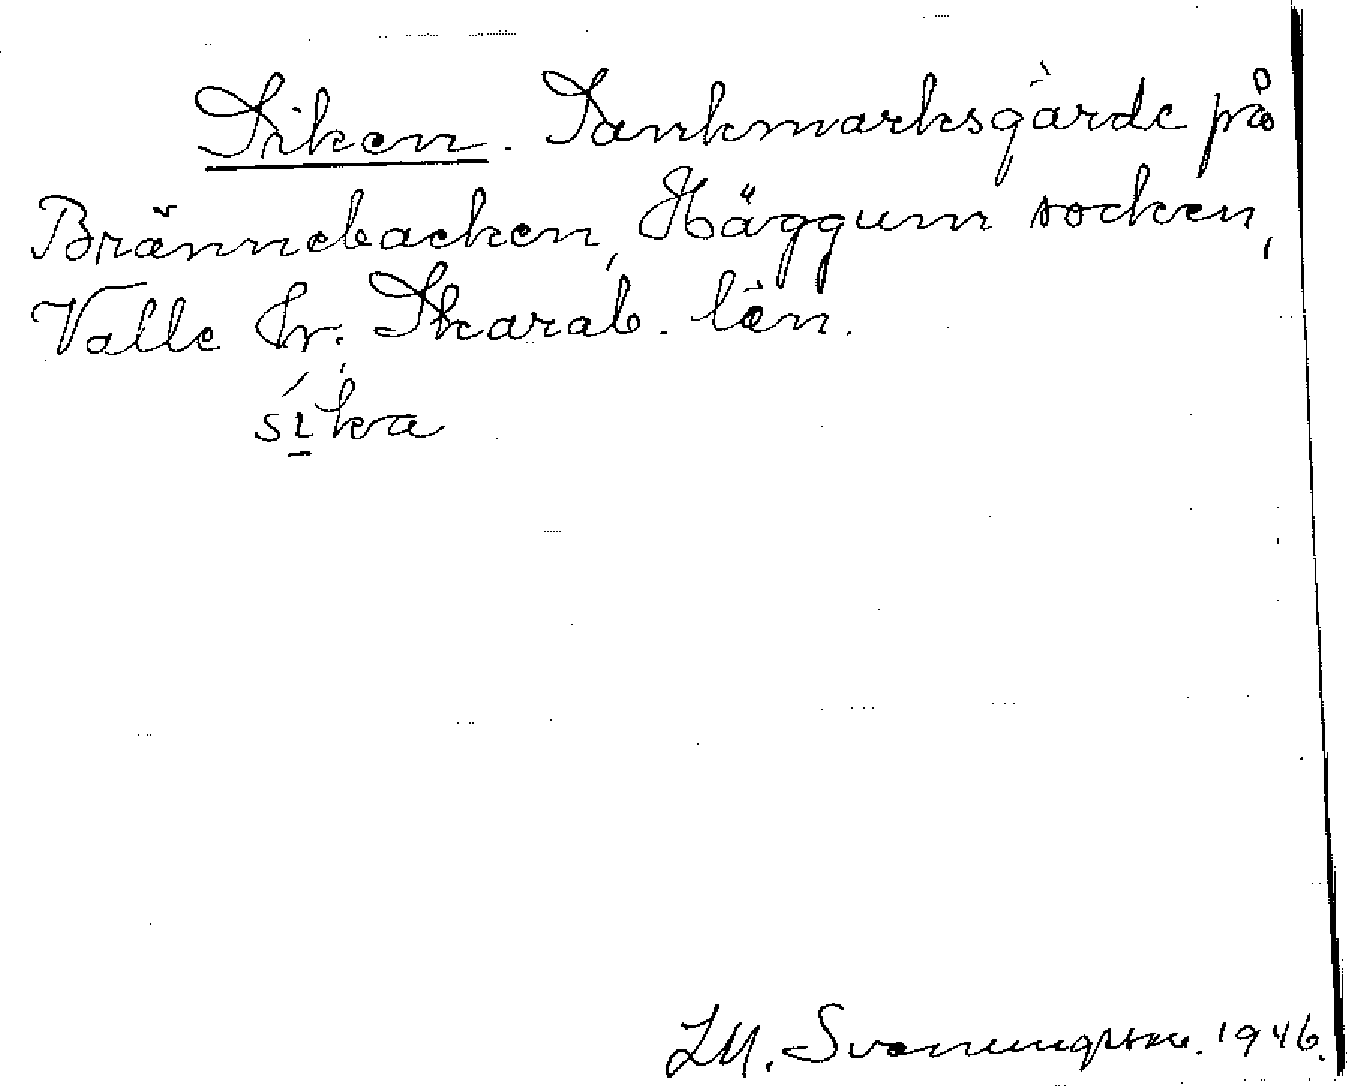 Siken. Sankmarksgärde på
Brännebacken, Häggum socken,
Valle hr. Skarab. län.
sı̲́ka
LM. Svenungsson. 1946.